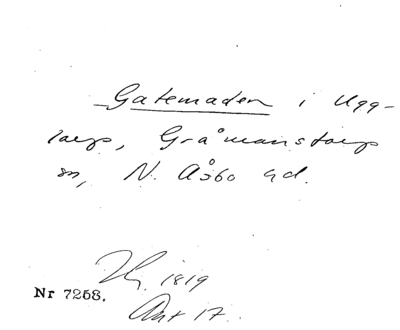 Gatemaden i Ugg-
larp, Gråmanstorps
sn, N. Åsbo hd.
1819
Nr 7258.
Akt 17.